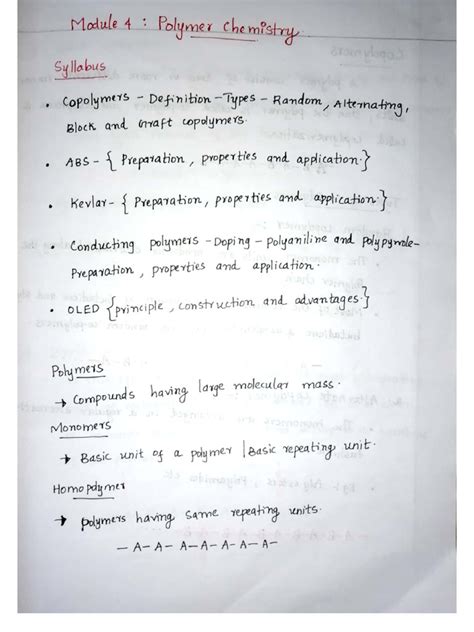 Module 4 : Polymer Chemistry
Syllabus
• Copolymers - Definition - Types - Random, Alternating,
Block and Graft copolymers.
• ABS - { Preparation, properties and application.}
• Kevlar - { Preparation, properties and application.}
• Conducting polymers - Doping - Polyaniline and Polypyrole -
Preparation, properties and application.
• OLED {principle, construction and advantages.}
Polymers
→ Compounds having large molecular mass.
Monomers
→ Basic unit of a polymer | Basic repeating unit.
Homopolymer
→ polymers having same repeating units.
— A— A— A— A— A— A— A—